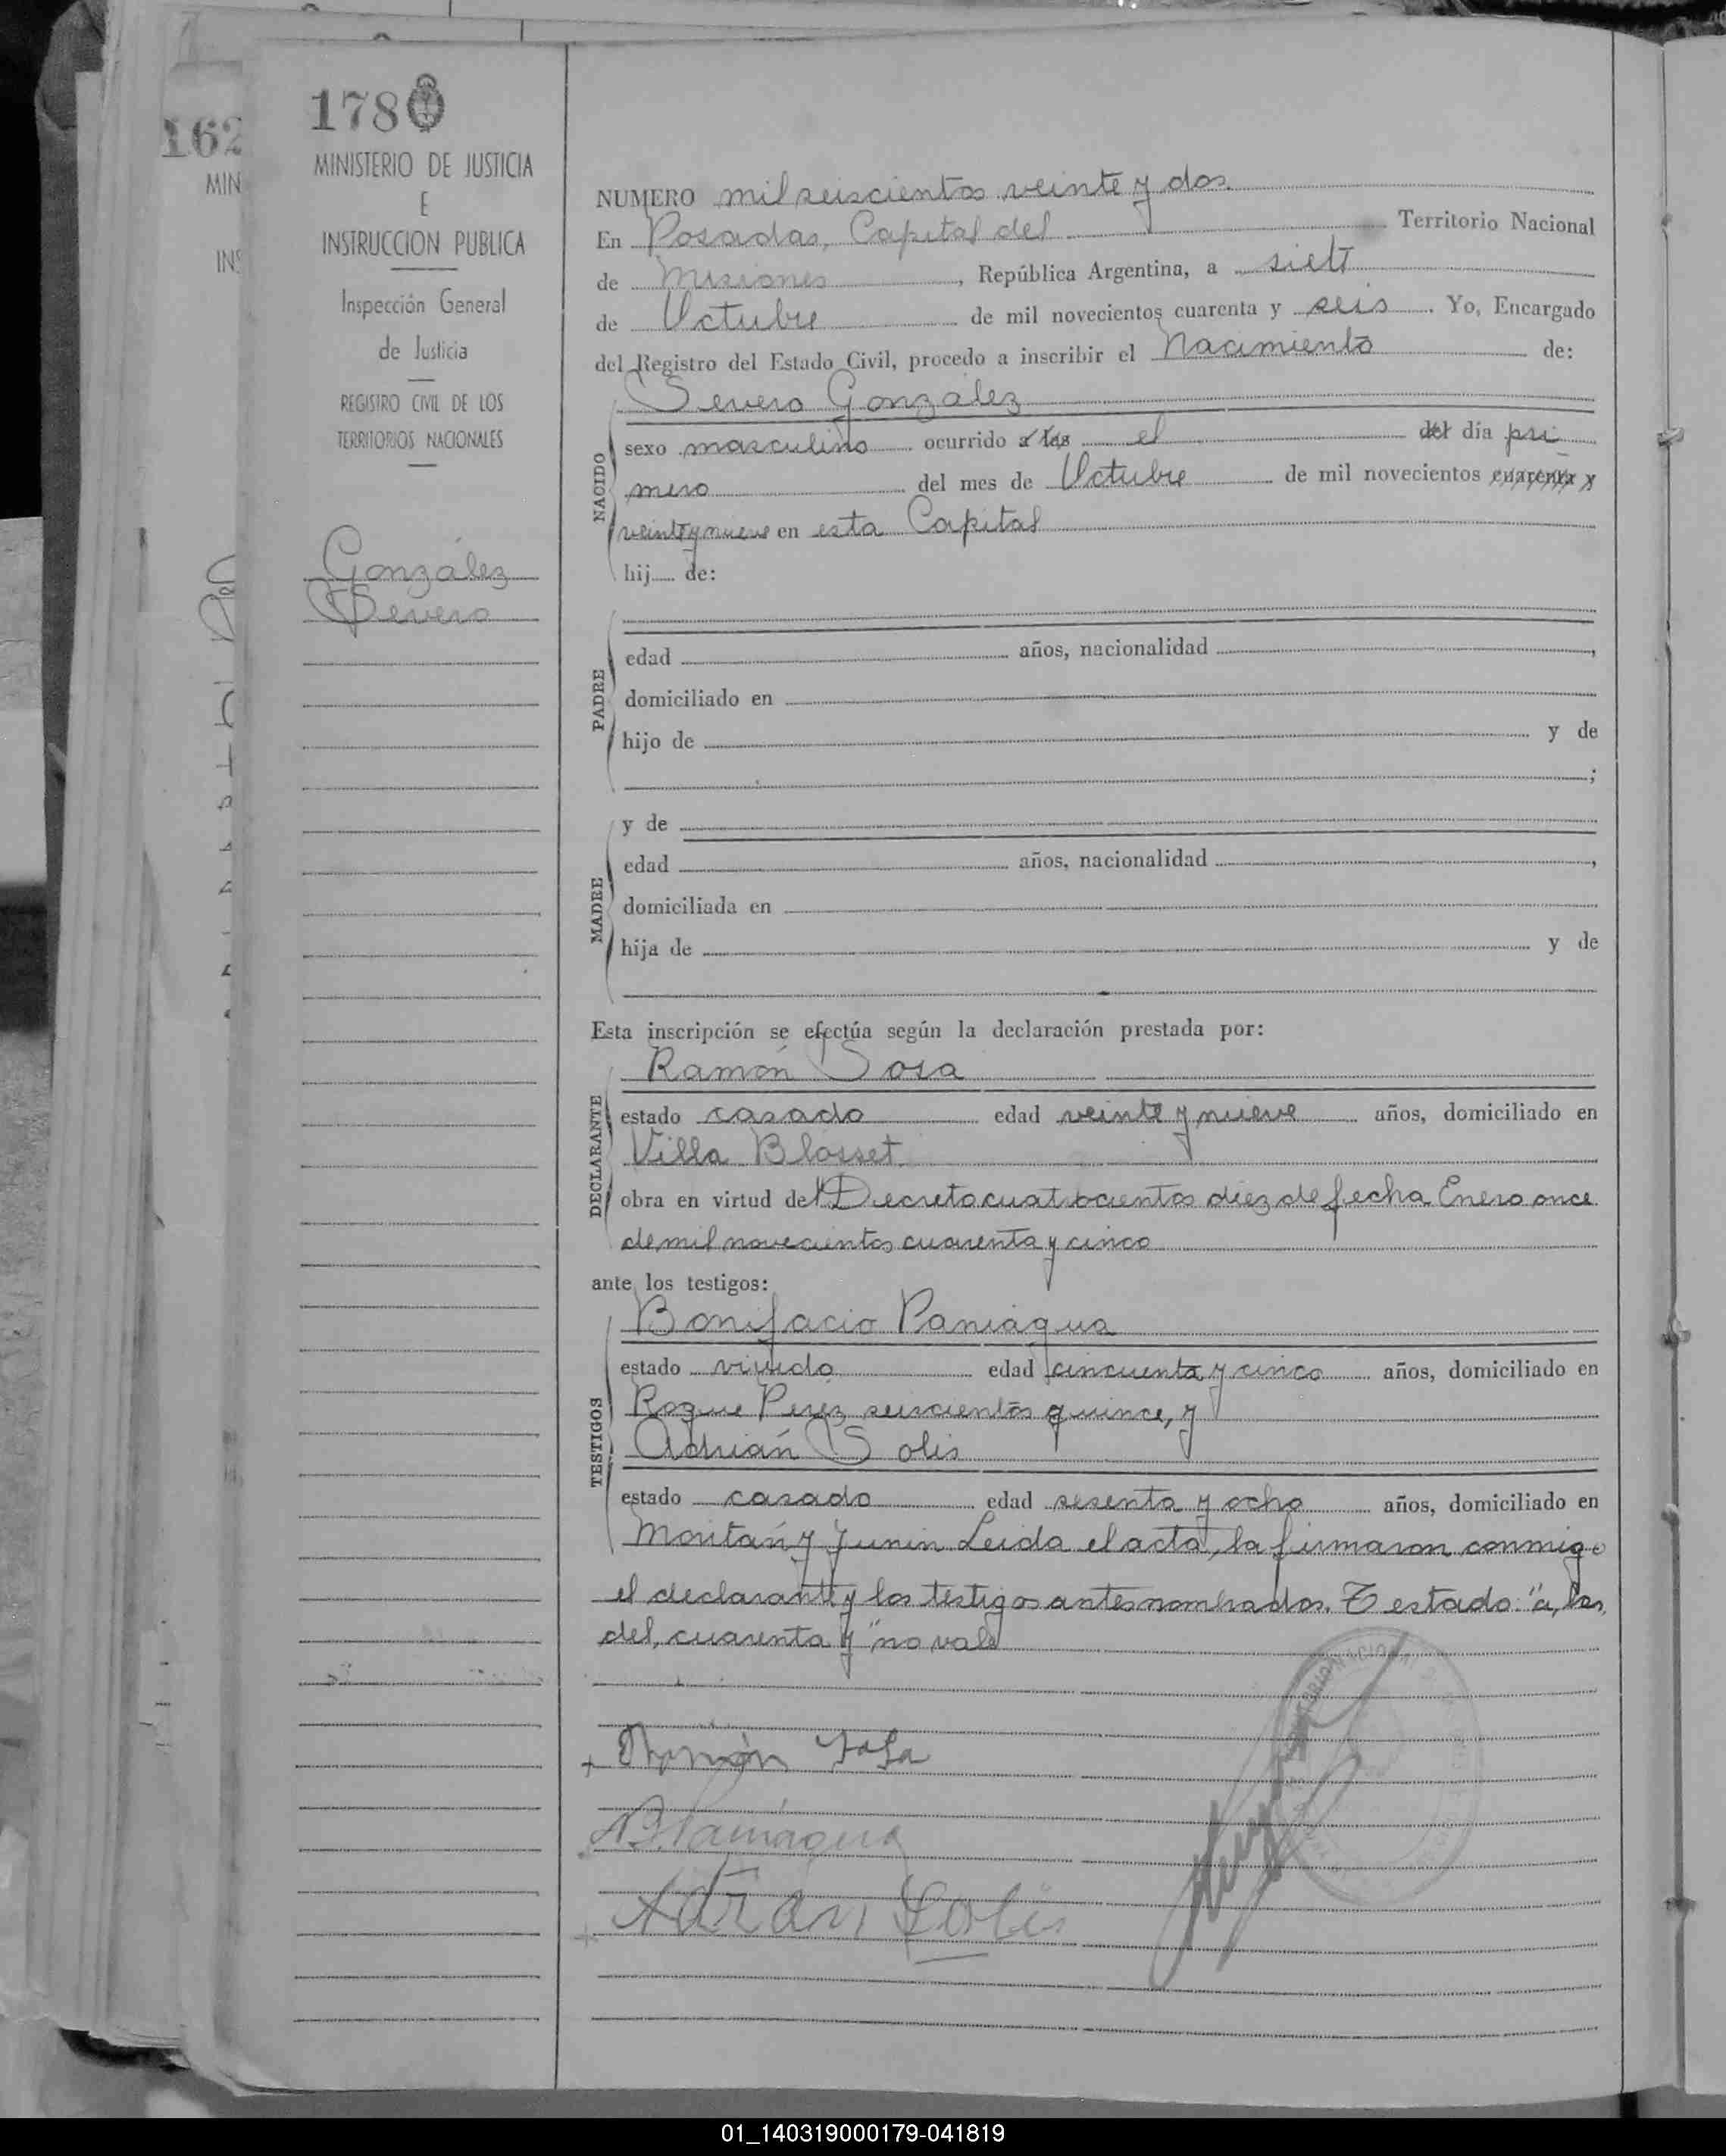 178
162
MINISTERIO DE JUSTICIA
MIN
E
INSTRUCCION PUBLICA
INS
Inspección General
de Justicia
REGISTRO CIVIL DE LOS
TERRITORIOS NACIONALES
González
Severo
NUMERO mil seiscientos veinte y dos
En Posadas, Capital del Territorio Nacional
de Misiones, República Argentina, a siete
de Octubre de mil novecientos cuarenta y seis. Yo, Encargado
del Registro del Estado Civil, procedo a inscribir el Nacimiento de:
Severo González
NACIDO
sexo masculino ocurrido a las el del día pri
mero del mes de Octubre de mil novecientos cuarenta y
veinte y nueve en esta Capital
hij de:
PADRE
edad años, nacionalidad ,
domiciliado en
hijo de y de
;
MADRE
y de
edad años, nacionalidad ,
domiciliada en
hija de y de
Esta inscripción se efectúa según la declaración prestada por:
DECLARANTE
Ramón Sosa
estado casado edad veinte y nueve años, domiciliado en
Villa Blosset
obra en virtud del Decreto cuatrocientos diez de fecha Enero once
de mil novecientos cuarenta y cinco
ante los testigos:
TESTIGOS
Bonifacio Paniagua
estado viudo edad cincuenta y cinco años, domiciliado en
Roque Perez seiscientos quince, y
Adrián Solis
estado casado edad sesenta y ocho años, domiciliado en
y Junin Leida el acta, la firmaron conmigo
el declarante y los testigos antes nombrados. T estado: "a, las,
del, cuarenta y" no vale
Ramón Sosa
B Paniagua
Adrian Solis
01_140319000179-041819